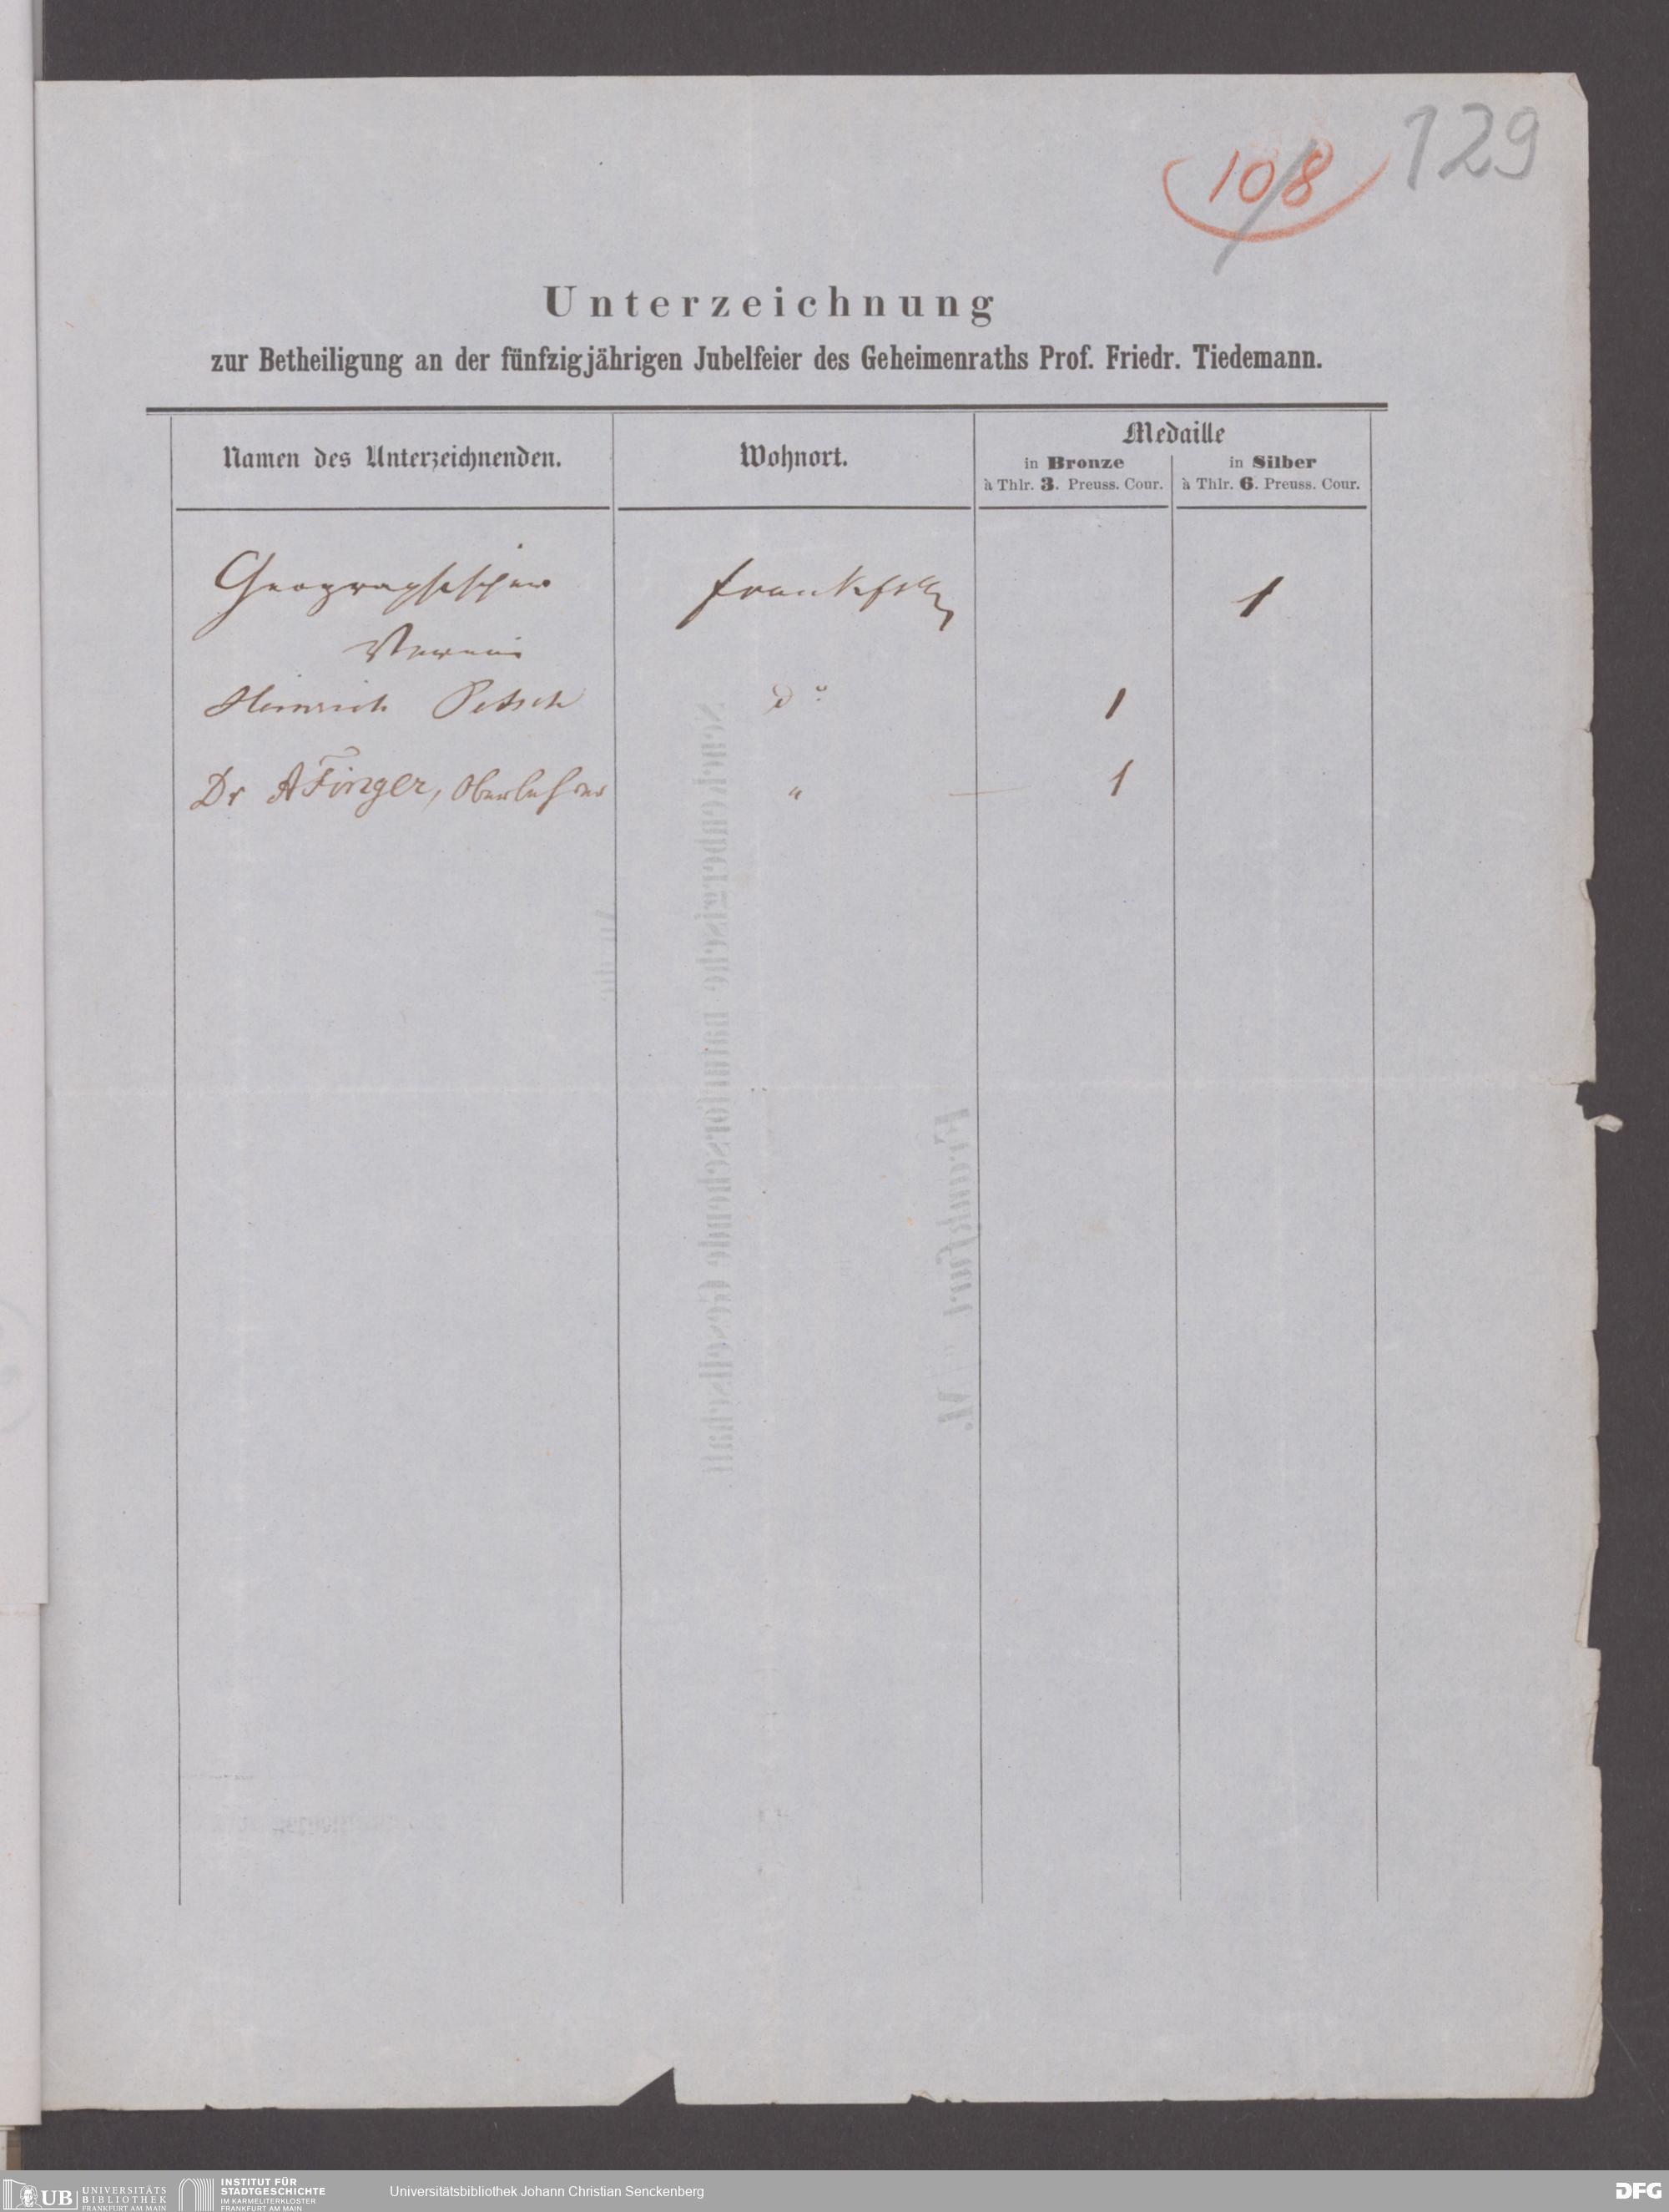 129
108
Unterzeichnung
zur Betheiligung an der fünfzigjährigen Jubelfeier des Geheimenraths Prof. Friedr. Tiedemann.
Namen des Unterzeichnenden. Wohnort. Medaille
in Bronze à Thlr. 3. Preuss. Cour. in Silber à Thlr. 6. Preuss. Cour.
Geographischer 1
Verein
Heinrich Petsch do 1
Dr A Finger, Oberlehrer " 1
Senckenbergische naturforschende Gesellschaft
Frankfurt a/M.
UB UNIVERSITÄTS
BIBLIOTHEK
FRANKFURT AM MAIN
INSTITUT FÜR
STADTGESCHICHTE
IM KARMELITERKLOSTER
FRANKFURT AM MAIN
Universitätsbibliothek Johann Christian Senckenberg
DFG